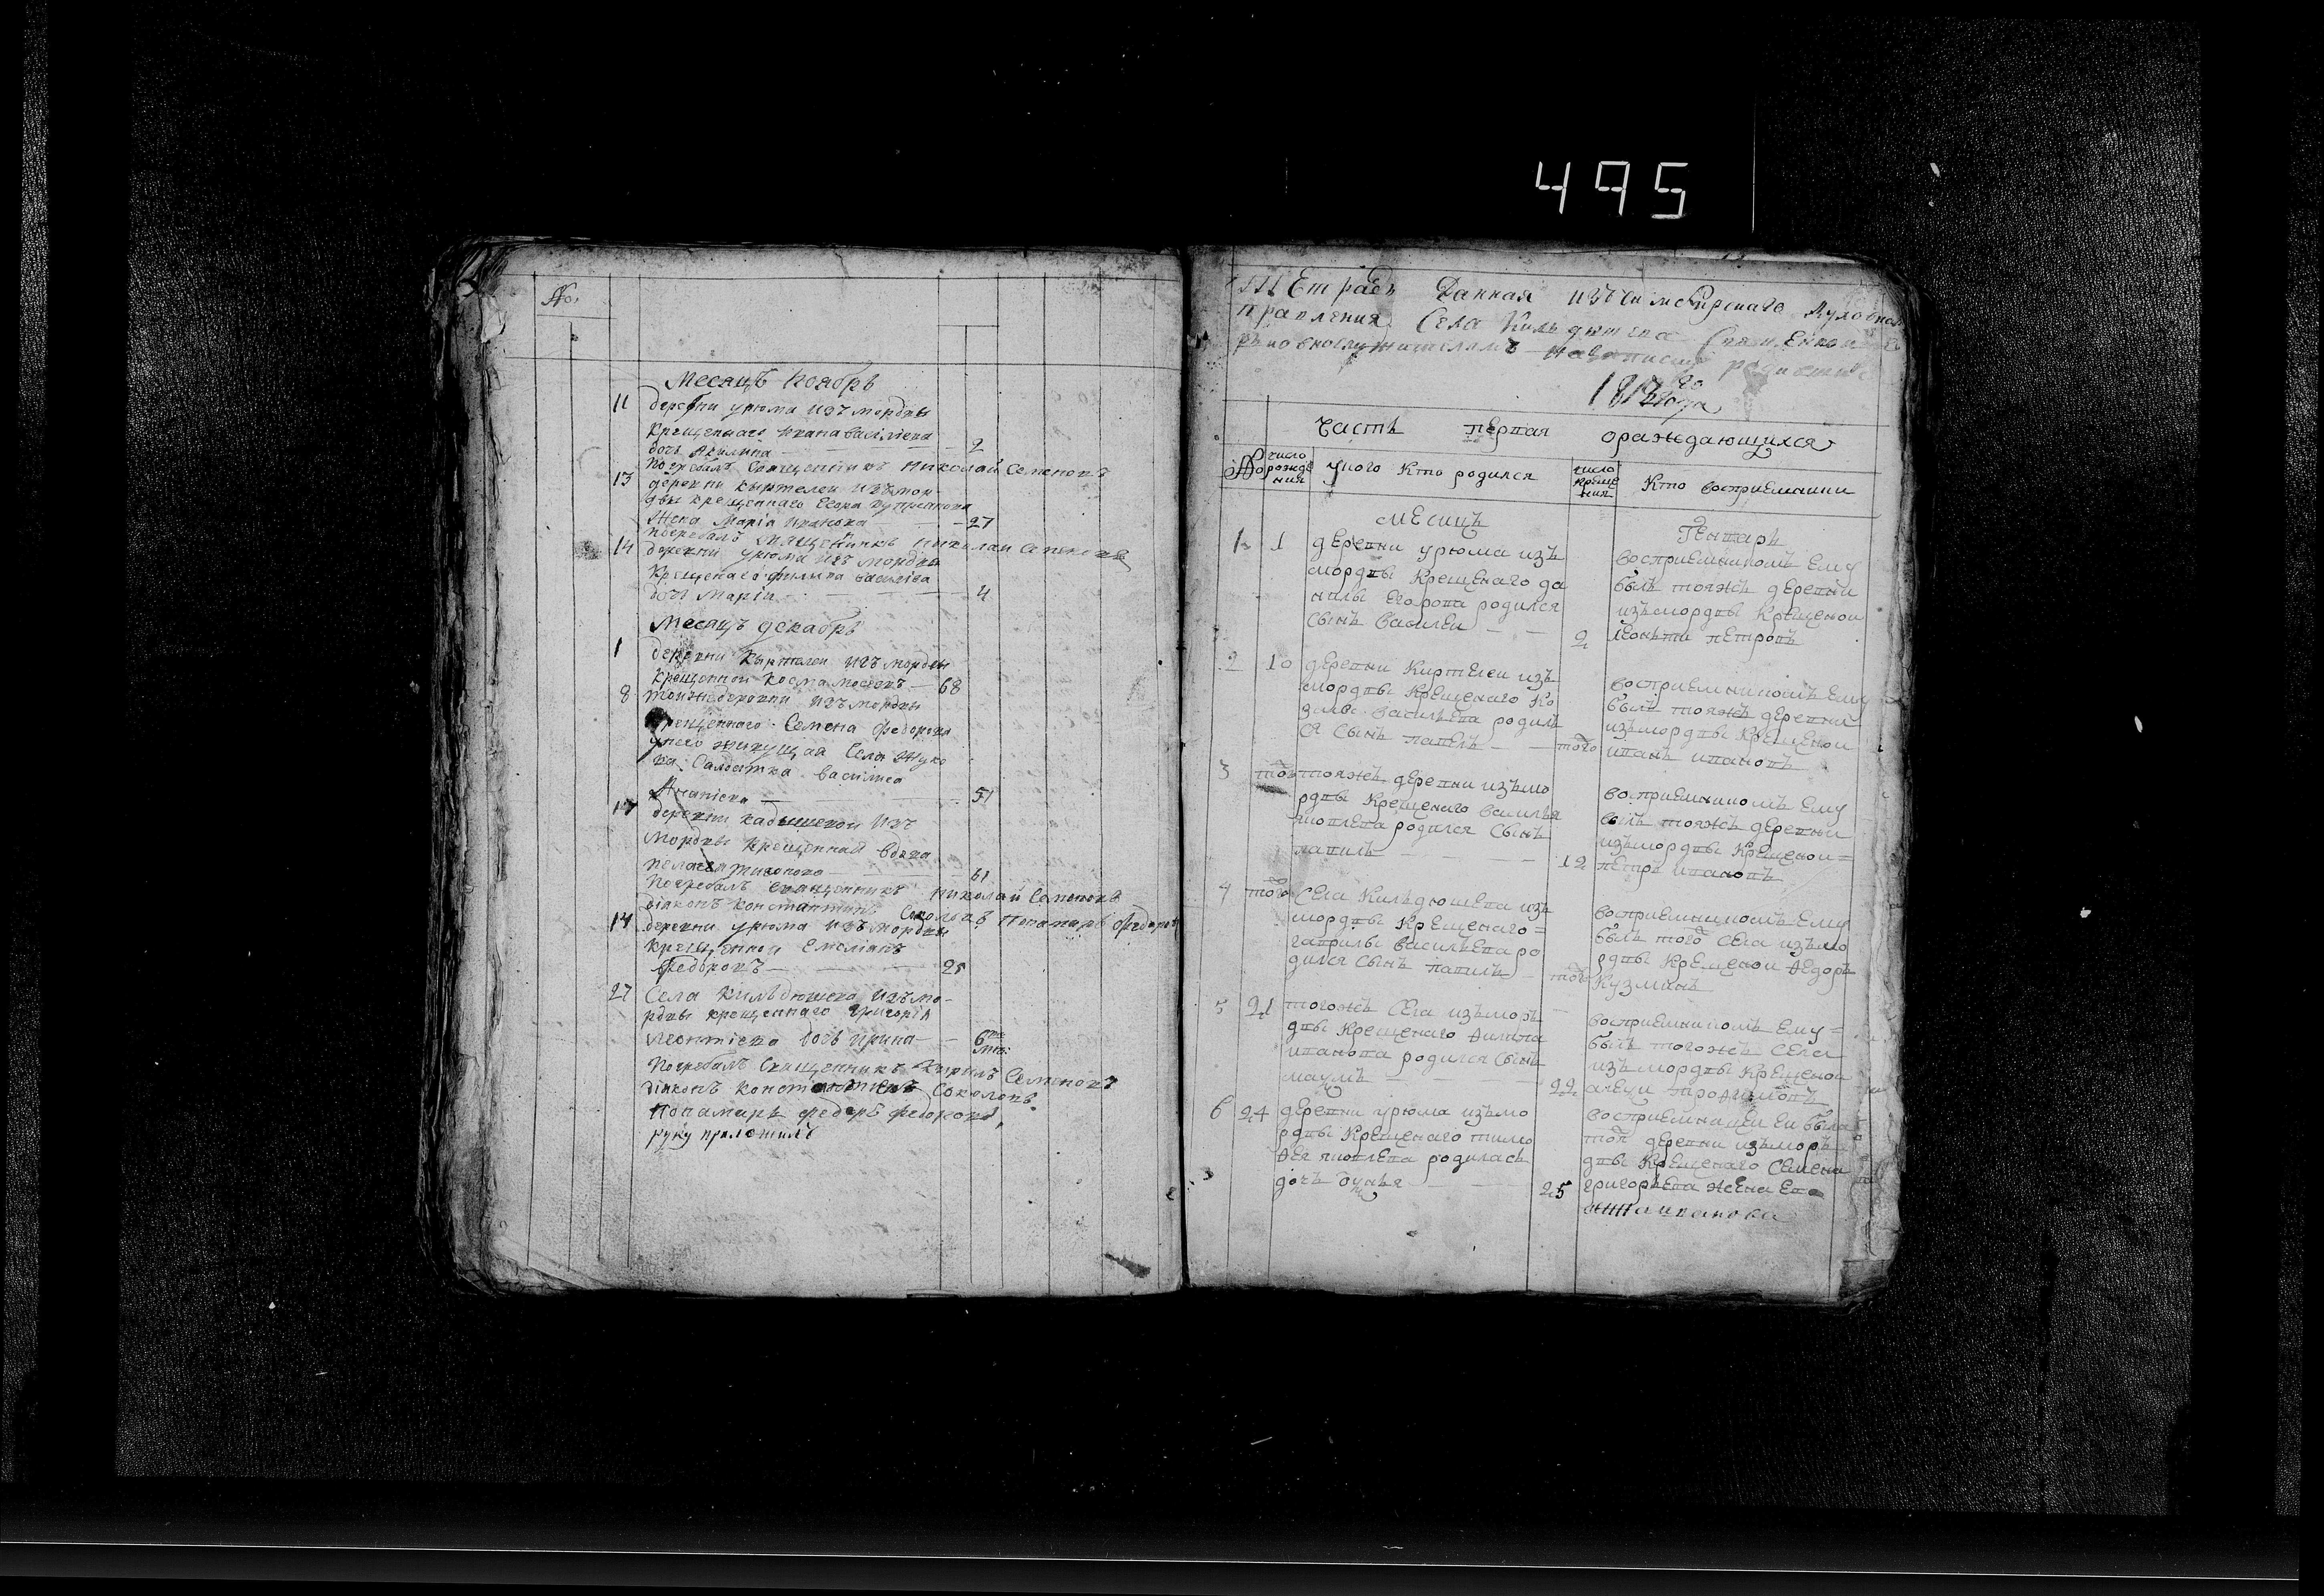 495
№.
Месяцъ ноябрь
11 деревни урюма изъ мордвы
крещенаго ивана василиева
дочь Акилина — 2
погребалъ Священникъ Николай Семеновъ
13 деревни кыртелеи изъ мор-
двы крещеннаго Егора
жена Мария иванова — 27
погребалъ священникъ николаи семеновъ
14 деревни урюма изъ мордвы
крещенаго филипа василиева
дочь Мария — 4
Месяцъ декабрь
1 деревни кыртелеи изъ мордвы
крещенной Косма — 68
8 тоижъ деревни изъ мордвы
крещеннаго Семена федорова
у него живущая Села Жуко
ва Салдатка василиса
Ананиева — 51
17 деревни кадышевои изъ
мордвы крещенная вдова
пелагея — 61
погребалъ священникъ николай Семеновъ
диаконъ константинъ Соколовъ Понамарь федоров
14 деревни урюма изъ мордвы
крещенной Емелианъ
федоровъ — 25
27 Села кильдюшева изъ мо-
рдвы крещеннаго григория
леонтиева дочь ирина — 6
погребалъ Священникъ Кирилъ Семеновъ
диаконъ константинъ Соколовъ
Понамарь федоръ федоровъ
руку приложилъ
Тетрадь Данная изъ Симбирскаго духовнаго
правления Села Кильдюшева Священно и це
рковнослужителямъ на записку родившихся
1812го года
Часть первая ораждающихся
№ число рожде ния
у кого кто родился
число креще ния
Кто восприемники
Месяцъ Генварь
1 1 деревни урюма изъ
мордвы крещенаго да
нилы Егорова родился
сынъ василеи — 2
восприемникомъ ему
былъ тояжъ деревни
изъ мордвы крещенои
леонтии петровъ
2 10 деревни Киртелеи изъ
мордвы крещенаго Ко
змы василева родил
ся сынъ павелъ — того
восприемникомъ ему
былъ тояжъ деревни
изъ мордвы крещенои
иванъ ивановъ
3 того тояжъ деревни изъ мо
рдвы крещенаго василья
яковлева родился сынъ
павилъ — 12
восприемникомъ ему
былъ тояжъ деревни
изъ мордвы крещенои=
петръ ивановъ
4 того села Кильдюшева изъ
мордвы крещенаго=
гаврилы василева ро
дился сынъ павилъ — того
восприемникомъ ему
былъ того села изъ мо
рдвы крещенои ѳедоръ
Кузминъ
5 21 тогожъ села изъ мор
двы крещенаго ѳилипа
иванова родился сынъ
маумъ — 22
восприемникомъ ему=
былъ тогожъ села
изъ мордвы крещенои
алеѯи троѳимовъ
6 24 деревни урюма изъ мо
рдвы крещенаго тимо
ѳея яковлева родилась
дочь — 25
восприемницеи еи была
тоя деревни изъ мор
двы крещенаго семена
григорьева жена его
анна иванова